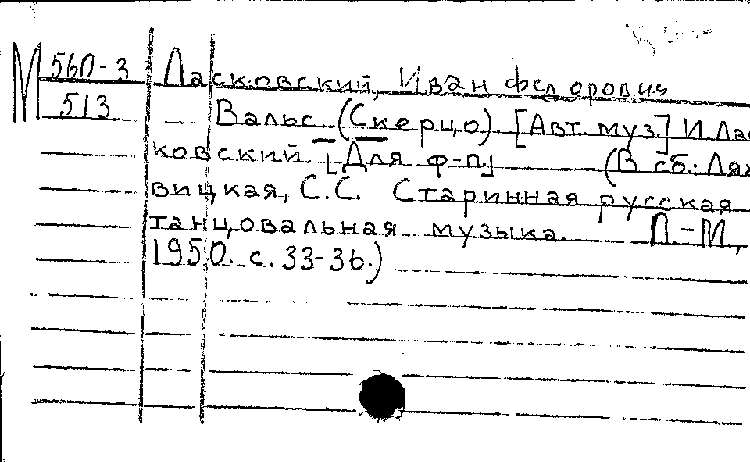 М 56П-3 Ласковский, Иван Федорович
513 Вальс (Скерцо) [Авт. муз.] И. Лас
ковский. [Для ф-п.] (В сб.: Лях
вицкая, С.С. Старинная русская
танцовальная музыка. Л.-М.,
1950. с. 33-36.)